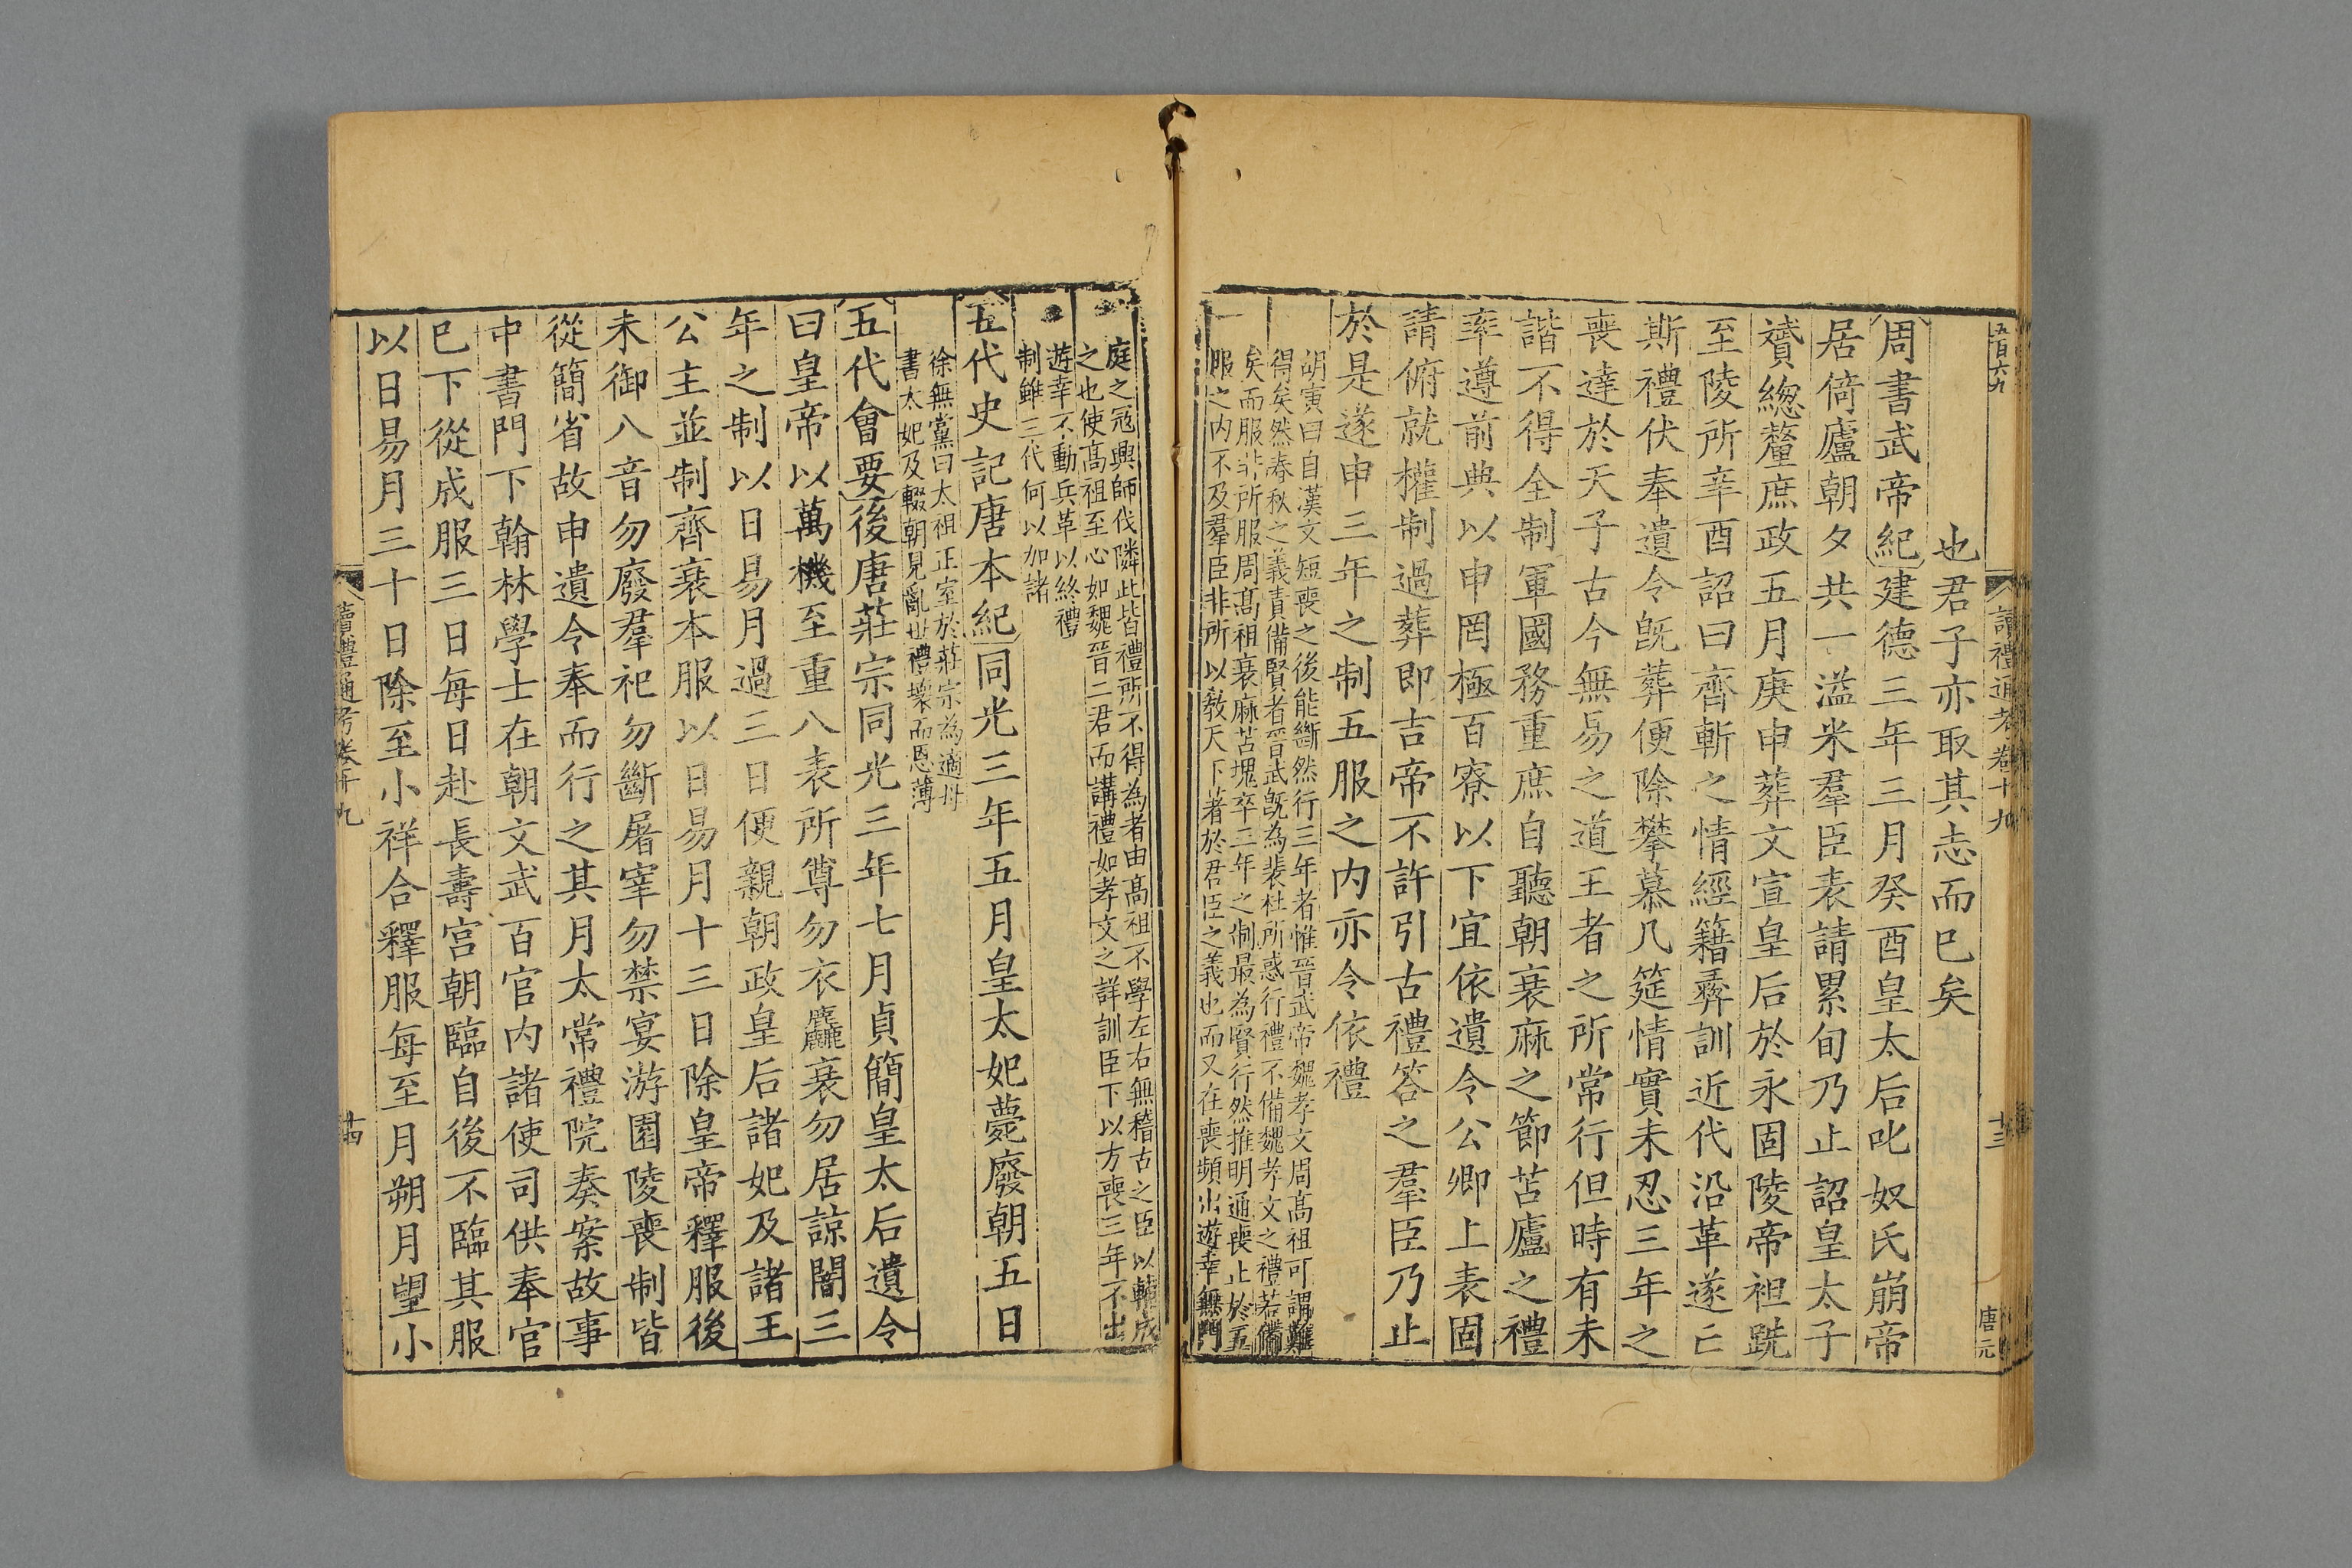 五百六九
讀禮通考卷十九
十三
唐元
也君子亦取其志而已矣
周書武帝紀建德三年三月癸酉皇太后叱奴氏崩帝
居倚廬朝夕共一溢米羣臣表請累旬乃止詔皇太子
贇緫釐庶政五月庚申葬文宣皇后於永固陵帝袒跣
至陵所辛酉詔曰齊斬之情經籍彝訓近代沿革遂亡
斯禮伏奉遺令旣葬便除攀慕几筵情實未忍三年之
喪達於天子古今無易之道王者之所常行但時有未
諧不得全制軍國務重庶自聽朝衰麻之節苫廬之禮
率遵前典以申罔極百寮以下宜依遺令公卿上表固
請俯就權制過葬即吉帝不許引古禮答之羣臣乃止
於是遂申三年之制五服之内亦令依禮
胡寅曰自漢文短喪之後能斷然行三年者惟晉武帝魏孝文周髙祖可謂難
得矣然春秋之義責備賢者晉武旣為裴杜所惑行禮不備魏孝文之禮若備
矣而服非所服周髙祖衰麻苫塊卒三年之制最為賢行然推明通喪止於五
服之内不及羣臣非所以教天下著於君臣之義也而又在喪頻出遊幸無門
庭之冦興師伐隣此皆禮所不得為者由髙祖不學左右無稽古之臣以輔成
之也使髙祖至心如魏晉二君而講禮如孝文之詳訓臣下以方喪三年不出
遊幸不動兵革以終禮
制雖三代何以加諸
五代史記唐本紀同光三年五月皇太妃薨廢朝五日
徐無黨曰太祖正室於莊宗為適母
書太妃及輟朝見亂世禮壞而恩薄
五代會要後唐莊宗同光三年七月貞簡皇太后遺令
曰皇帝以萬機至重八表所尊勿衣麤衰勿居諒闇三
年之制以日易月過三日便親朝政皇后諸妃及諸王
公主並制齊衰本服以日易月十三日除皇帝釋服後
未御八音勿廢羣祀勿斷屠宰勿禁宴游園陵喪制皆
從簡省故申遺令奉而行之其月太常禮院奏案故事
中書門下翰林學士在朝文武百官内諸使司供奉官
已下從成服三日每日赴長壽宮朝臨自後不臨其服
以日易月三十日除至小祥合釋服每至月朔月望小
讀禮通考卷十九
十四